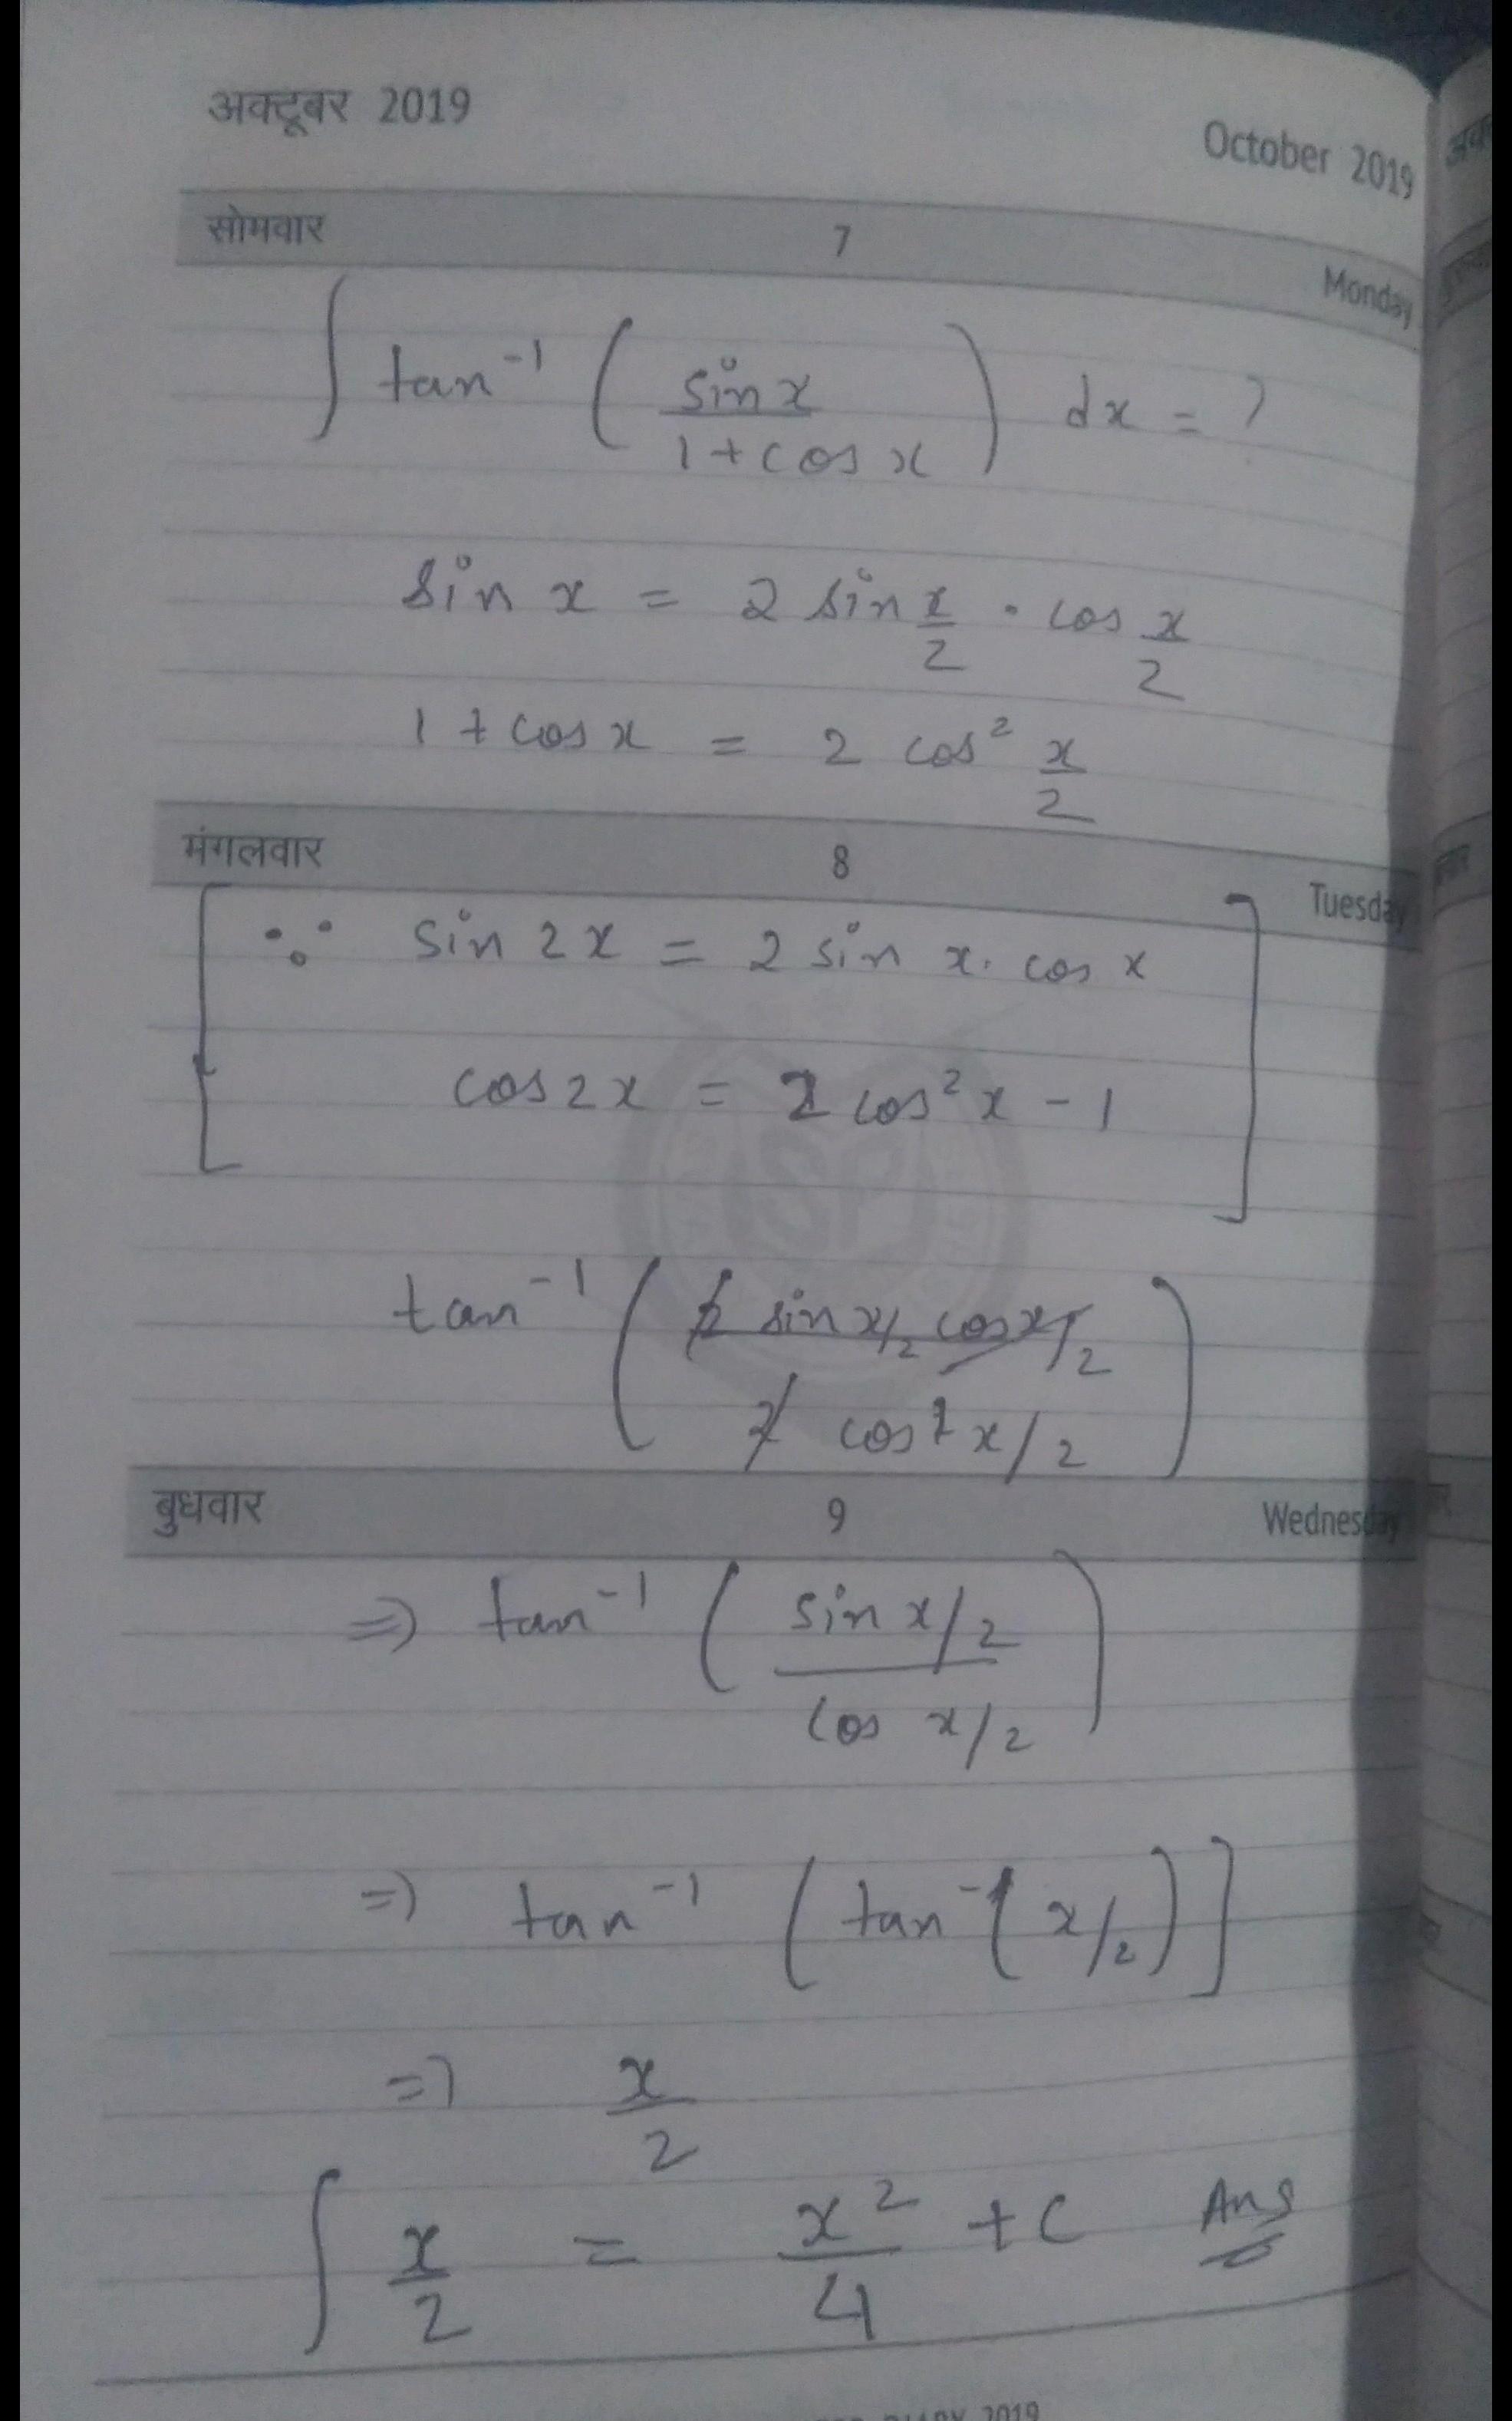 अक्टूबर 2019
October 2019
सोमवार 7 Monday
∫ tan⁻¹ ( sin x / 1 + cos x ) dx = ?
sin x = 2 sin x/2 · cos x/2
1 + cos x = 2 cos² x/2
मंगलवार 8 Tuesday
[ ∵ sin 2x = 2 sin x. cos x
cos 2x = 2 cos² x - 1 ]
tan⁻¹ ( 2 sin x/2 cos x/2 / 2 cos² x/2 )
बुधवार 9 Wednesday
⇒ tan⁻¹ ( sin x/2 / cos x/2 )
⇒ tan⁻¹ ( tan⁻¹ ( x/2 ) ]
⇒ x/2
∫ x/2 = x²/4 + C Ans
2019